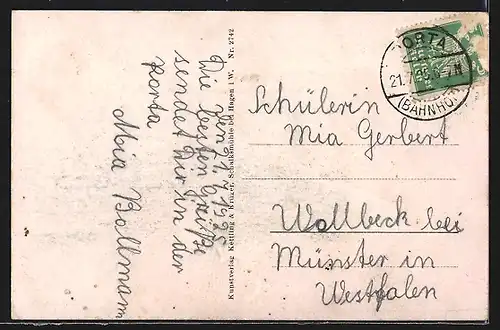 den 21.7.1925
Die besten Grüße
sendet Dir in der
porta
Mia Bollmann
Kunstverlag Kettling & Krüger, Schalksmühle bei Hagen i.W. Nr. 2742
PORTA
21.7.
(BAHNHOF)
Schülerin
Mia Gerbert
Wollbeck bei
Münster in
Westfalen